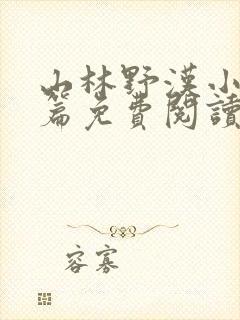 山林野漢小
篇免費閱讀
容寡